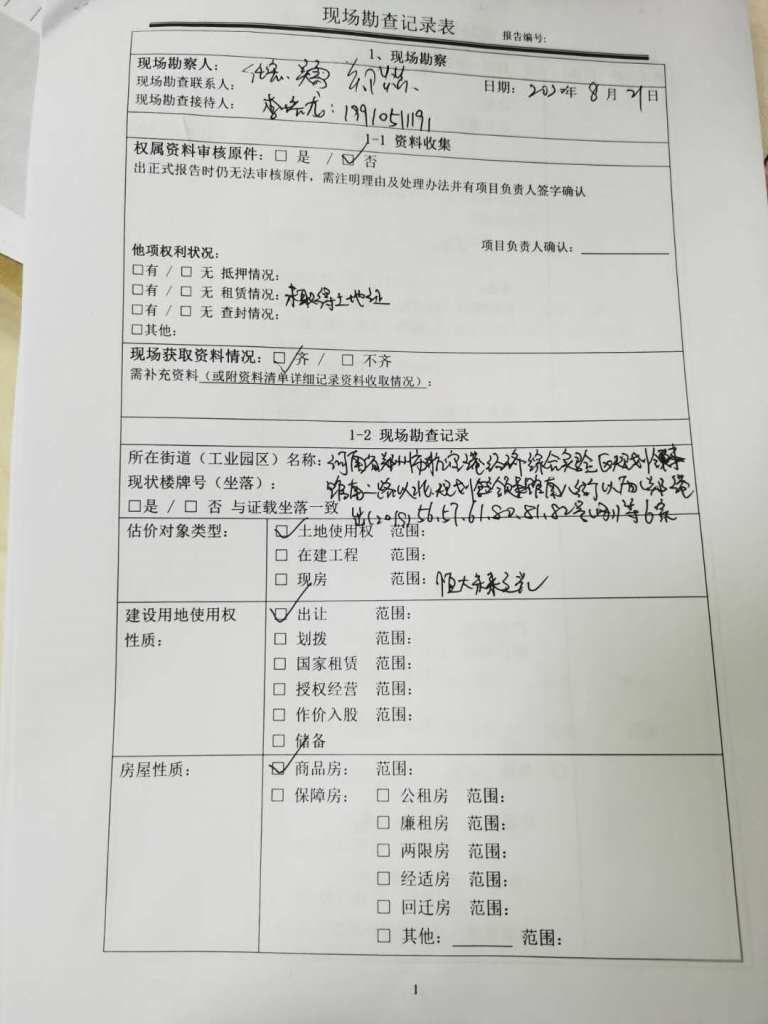 现场勘查记录表
报告编号:
1、现场勘察
现场勘察人:
现场勘查联系人: 日期: 2020年 8 月 21 日
现场勘查接待人: 龙: 13910511191
1-1 资料收集
权属资料审核原件: □ 是 / ☑ 否
出正式报告时仍无法审核原件，需注明理由及处理办法并有项目负责人签字确认
项目负责人确认:
他项权利状况:
□有 / □ 无 抵押情况:
□有 / □ 无 租赁情况: 未取得土地证
□有 / □ 无 查封情况:
□其他:
现场获取资料情况: ☑ 齐 / □ 不齐
需补充资料（或附资料清单详细记录资料收取情况）:
1-2 现场勘查记录
所在街道（工业园区）名称: 河南省郑州市航空港经济综合实验区规划
现状楼牌号（坐落）: 路南一路以北、规划 路南八 以西 郑港
□是 / □ 否 与证载坐落一致 出(2019) 56、57、61、80、81、82号 等6宗
估价对象类型: ☑ 土地使用权 范围:
□ 在建工程 范围:
□ 现房 范围: 恒大未来之光
建设用地使用权性质: ☑ 出让 范围:
□ 划拨 范围:
□ 国家租赁 范围:
□ 授权经营 范围:
□ 作价入股 范围:
□ 储备
房屋性质: ☑ 商品房: 范围:
□ 保障房: □ 公租房 范围:
□ 廉租房 范围:
□ 两限房 范围:
□ 经适房 范围:
□ 回迁房 范围:
□ 其他:______ 范围:
1